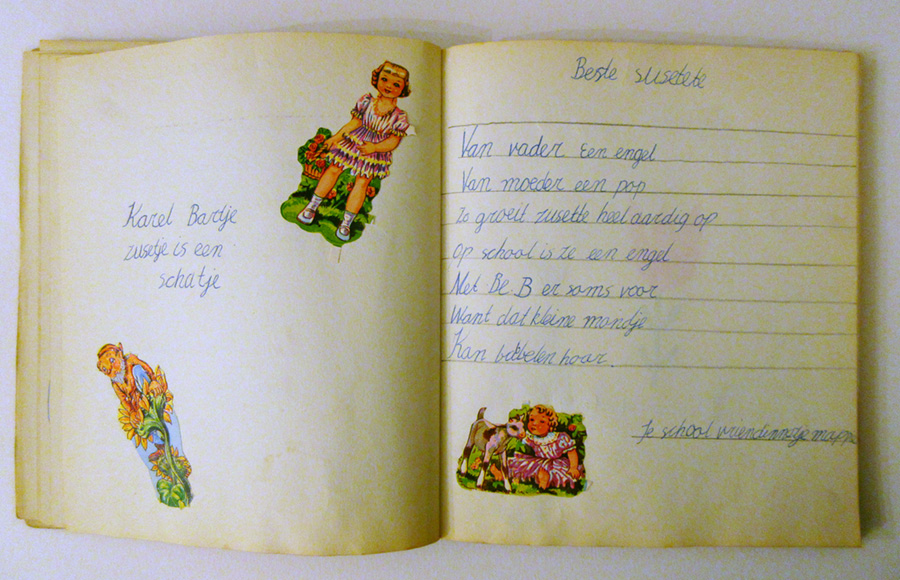 Karel Bartje
zusetje is een
schatje
Beste susette
Van vader een engel
Van moeder een pop
Zo groeit zusette heel aardig op
op school is ze een engel
Met Be B er soms voor
Want dat kleine mondje
Kan babbelen hoor.
Je school vriendinnetje